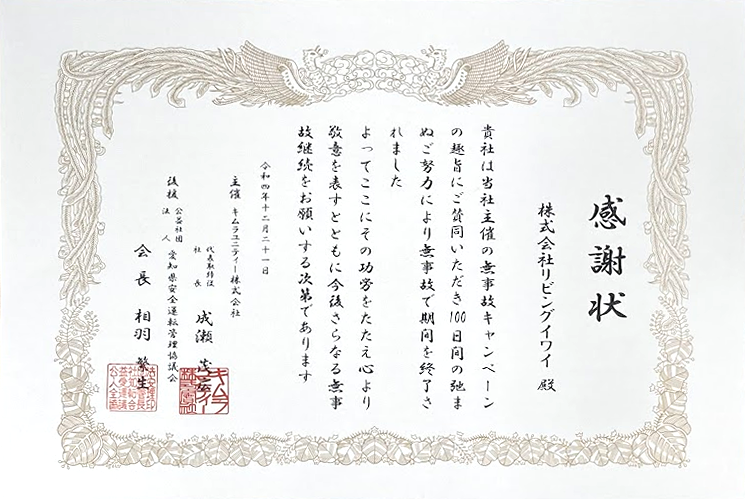 感謝状
株式会社リビングイワイ 殿
貴社は当社主催の無事故キャンペーン
の趣旨にご賛同いただき100日間の弛ま
ぬご努力により無事故で期間を終了さ
れました
よってここにその功労をたたえ心より
敬意を表すとともに今後さらなる無事
故継続をお願いする次第であります
令和四年十二月二十一日
主催 キムラユニティー株式会社
代表取締役
社長 成瀬 茂広
後援 公益社団
法人 愛知県安全運転管理協議会
会長 相羽 繁生